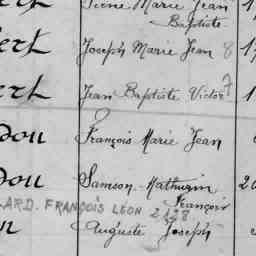 ert Pierre Marie Jean
Baptiste
ert Joseph Marie Jean 8
ert Jean Baptiste Victor 1
dou François Marie Jean
dou Samson Mathurin 20
François
ARD. FRANÇOIS LÉON 2128
n Auguste Joseph